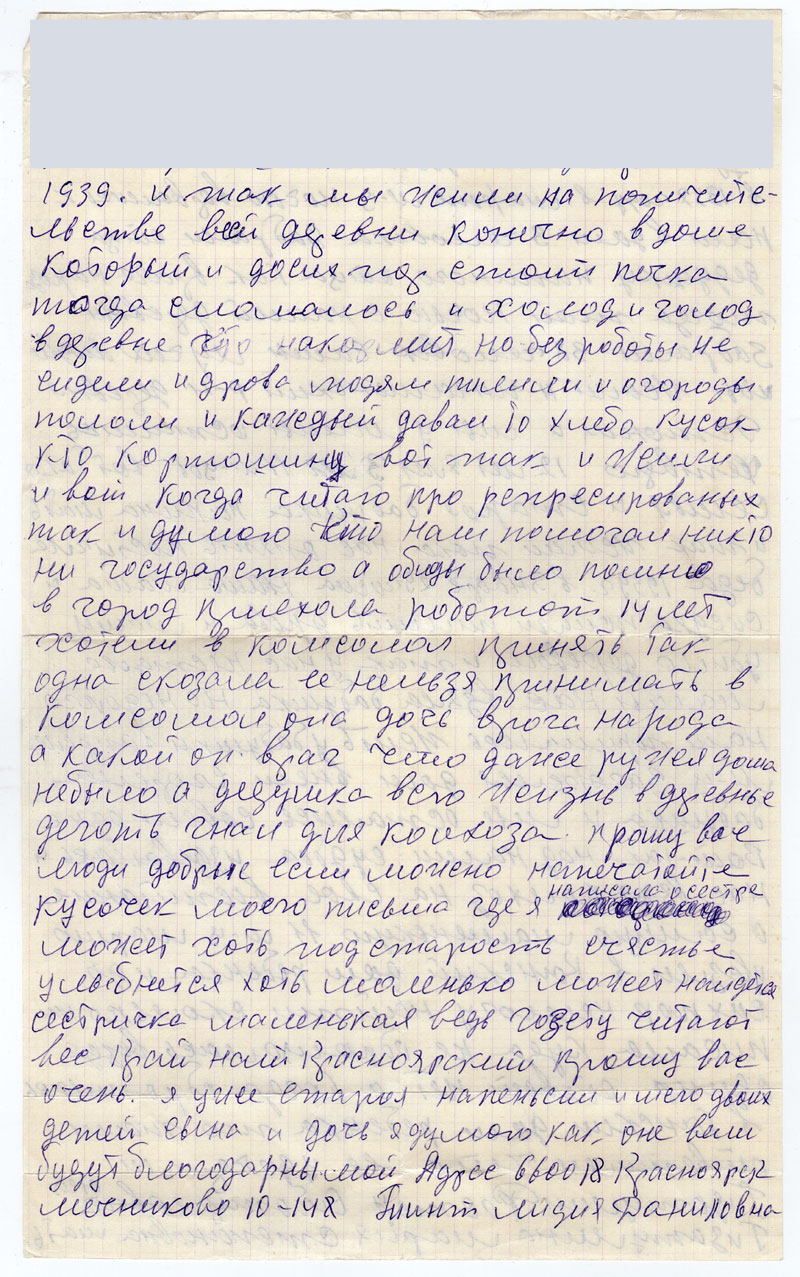 1939. и так мы жили на попичите-
льстве всей деревни конечно в доме
который и досих пор стоит печка
тогда сломалось и холод и голод
в деревне кто накормит но без роботы не
сидели и дрова людям пилили и огороды
пололи и каждый давал то хлебо кусок
кто картошину вот так и жили
и вот когда читаю про репресированых
так и думаю кто нам помогал никто
ни государство а обиды было помню
в город приехала роботот 14 лет
хотели в комсомол принять так
одна сказала ее нельзя принимать в
комсомол она дочь врога народа
а какой он враг что даже ружья дома
небыло а дедушка всю жизнь в деревне
деготь гнал для колхоза. прошу вас
люди добрые если можно напечатойте
кусочек моего письма где я написала о сестре
может хоть под старость счастье
улыбнется хоть маленько может найдется
сестричка маленькая ведь гозету читают
вес край наш Красноярский прошу вас
очень. я уже старая на пенсии имею двоих
детей сына и дочь я думаю как оне вам
будут благодарны мой Адрес 660018 Красноярск
мечниково 10-148 Лидия Даниловна